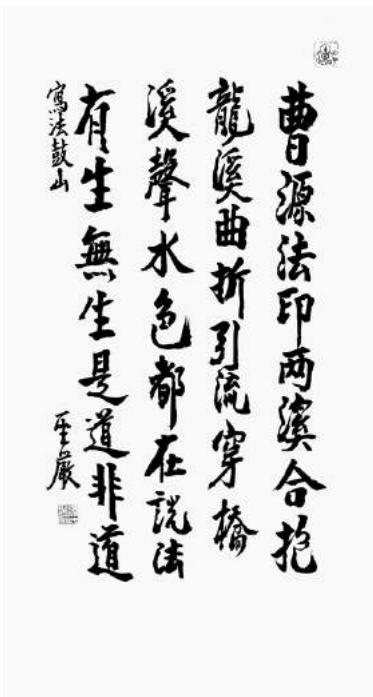 曹源法印兩溪合抱
龍溪曲折引流穿橋
溪聲水色都在說法
有生無生是道非道
寫法鼓山
聖嚴